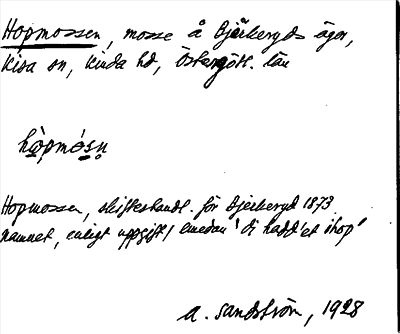 Hopmossen, mosse å Bjärkeryds ägor,
Kisa sn, Kinda hd, Östergötl. län
hò̱pmósn̥
Hopmossen, skifteshandl. för Bjärkeryd 1873
namnet, enligt uppgift, emedan "di hadd'et ihop"
A. Sandström, 1928